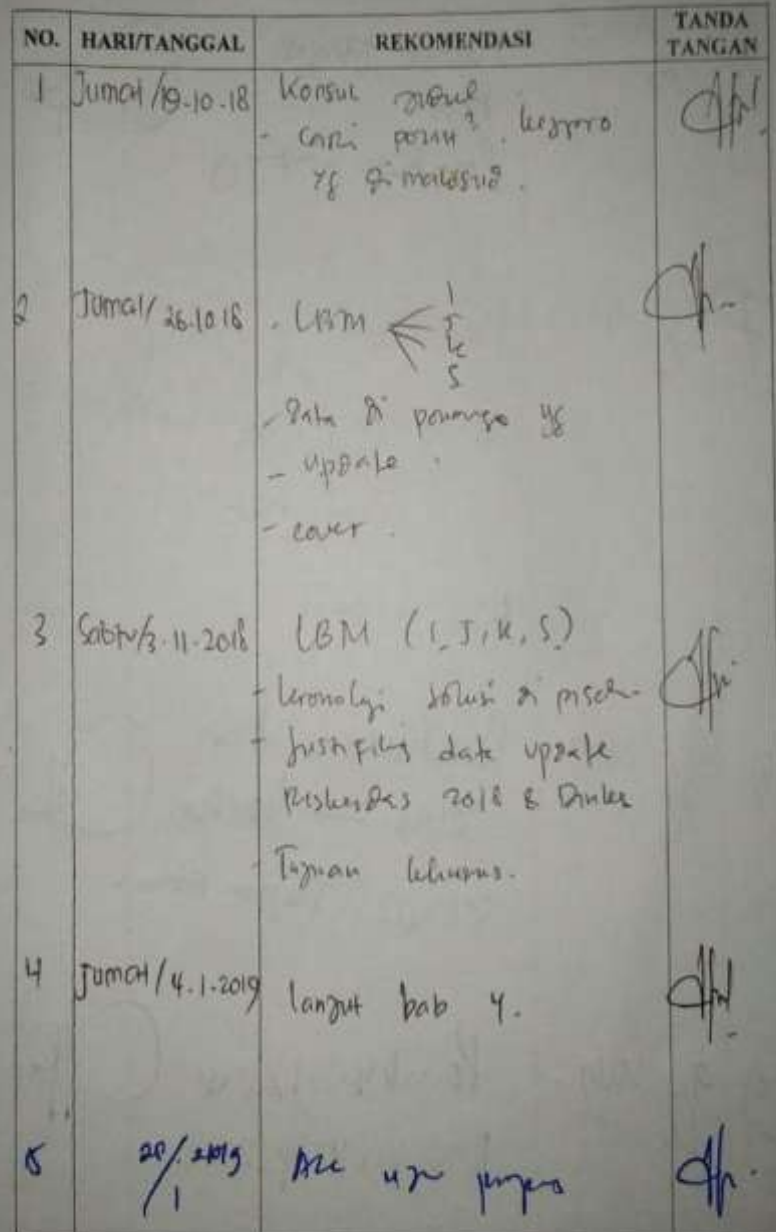 NO. HARI/TANGGAL REKOMENDASI TANDA TANGAN
1 Jumat/19-10-18 Konsul
- cari
yg di
2 Jumat/26.10.18 . LBM I
J
K
S
- Data di yg
- update .
- cover .
3 Sabtu/3-11-2018 LBM (I, J, K, S)
- kronologi solusi di
- Justifikasi data update
Riskesdas 2018 & Dinkes
- Tujuan khusus.
4 Jumat/4.1.2019 lanjut bab 4.
5 2019
1 Acc